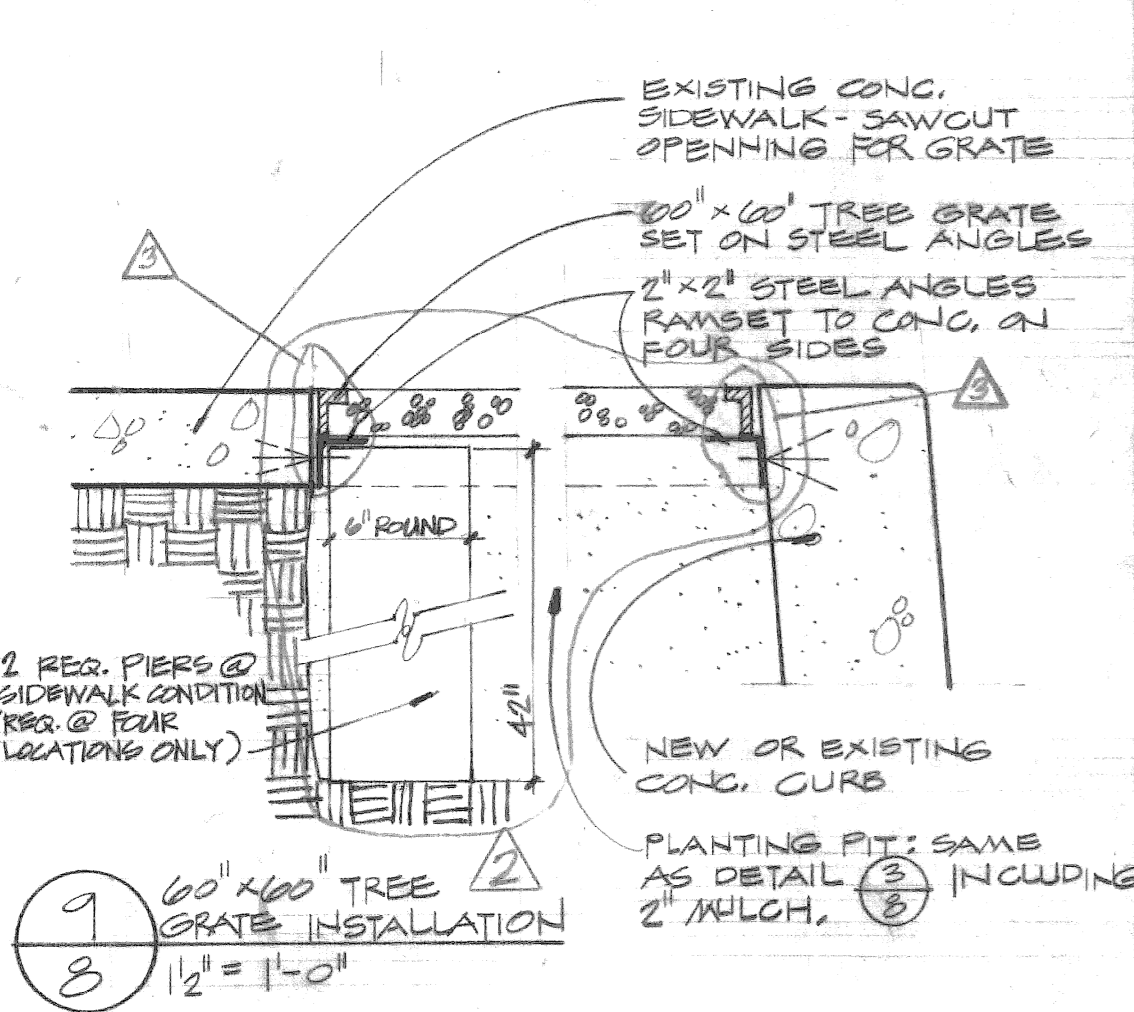 EXISTING CONC.
SIDEWALK - SAWCUT
OPENNING FOR GRATE
60" x 60' TREE GRATE
SET ON STEEL ANGLES
2" x 2" STEEL ANGLES
RAMSET TO CONC. ON
FOUR SIDES
3
3
6" ROUND
42"
2 REQ. PIERS @
SIDEWALK CONDITION
(REQ. @ FOUR
LOCATIONS ONLY)
NEW OR EXISTING
CONC. CURB
PLANTING PIT: SAME
AS DETAIL 3/8 INCLUDING
2" MULCH.
2
9
8
60" x 60" TREE
GRATE INSTALLATION
1 1/2" = 1'-0"